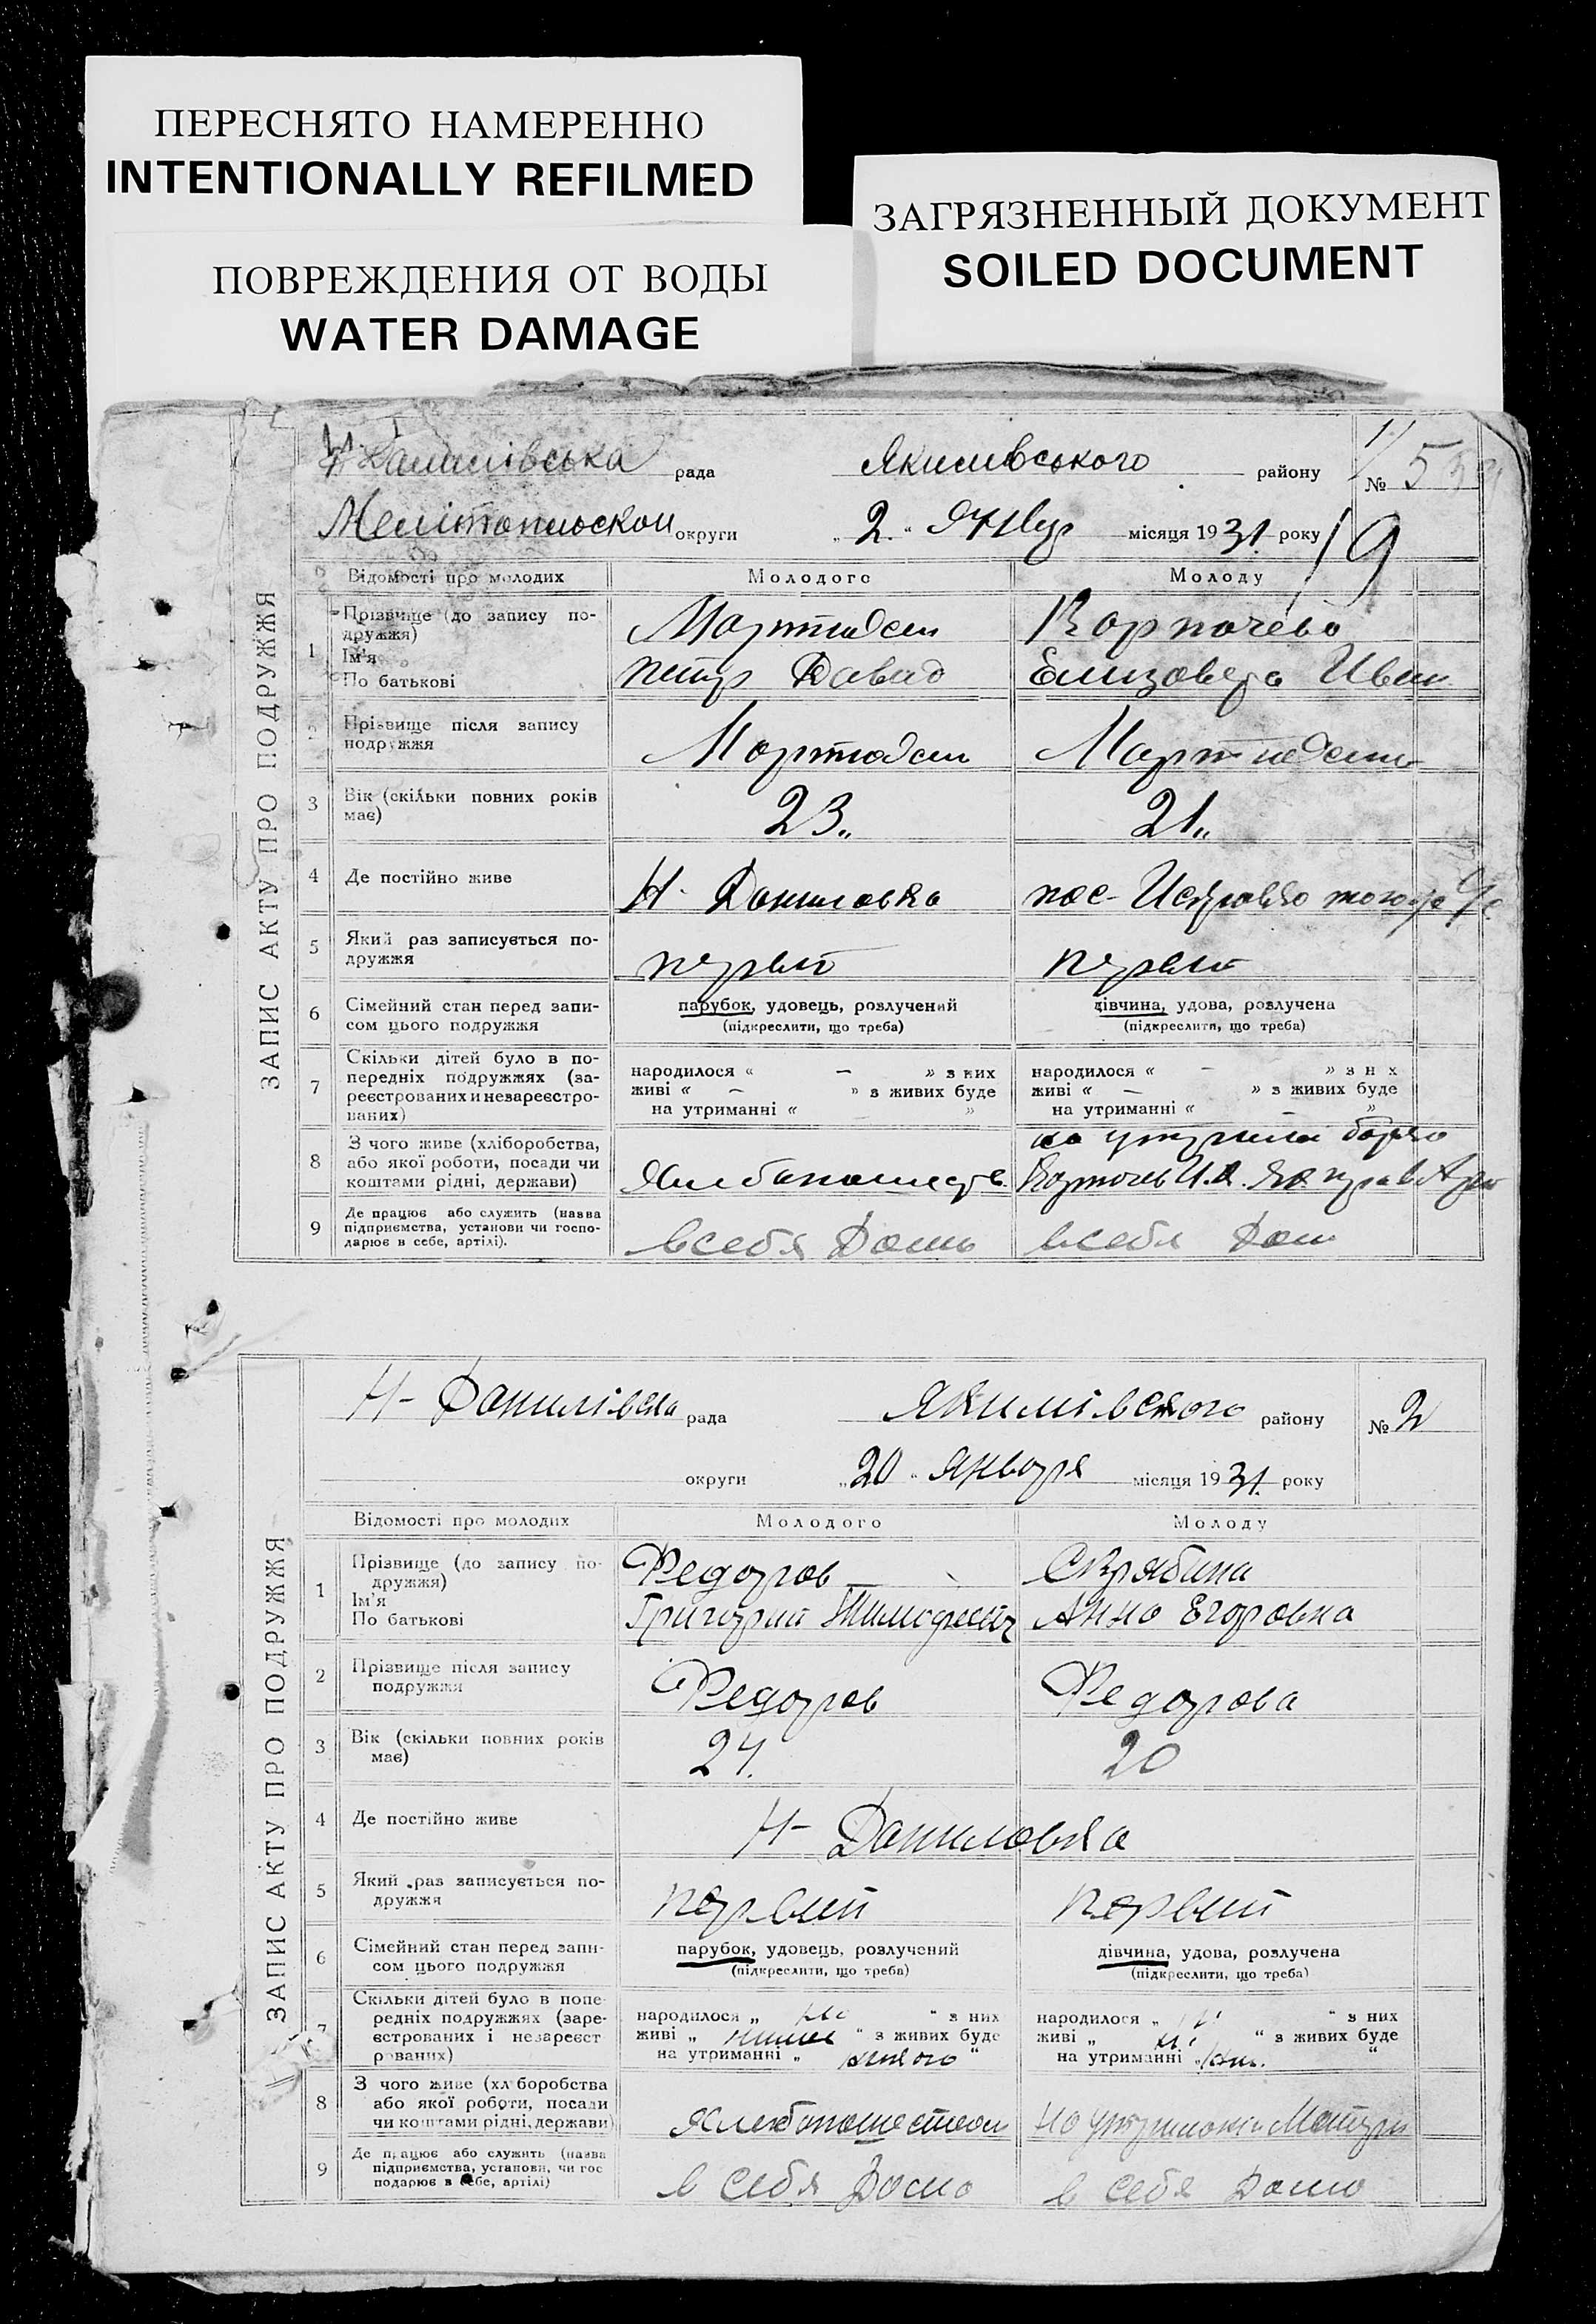 ПЕРЕСНЯТО НАМЕРЕННО
INTENTIONALLY REFILMED
ЗАГРЯЗНЕННЫЙ ДОКУМЕНТ
SOILED DOCUMENT
ПОВРЕЖДЕНИЯ ОТ ВОДЫ
WATER DAMAGE
ЗАПИС АКТУ ПРО ПОДРУЖЖЯ
Н. Данилівська рада Якимівського району № 5
Мелітопольскои округи „2.“ Янвр місяця 1931. року 19
Відомості про молодих Молодого Молоду
1 Прізвище (до запису подружжя) Ім'я По батькові
Мартидсен
Петр Давид Елизовета Иван
2 Прізвище після запису подружжя Мартидсен Мартидсен
3 Вік (скільки повних років має) 23„ 21„
4 Де постійно живе Н. Даниловка пос-
5 Який раз записується подружжя первый первый
6 Сімейний стан перед записом цього подружжя парубок, удовець, розлучений (підкреслити, що треба) дівчина, удова, розлучена (підкреслити, що треба)
7 Скільки дітей було в попередніх подружжях (зареєстрованих и незареєстрованих)
народилося « — » з них народилося « — » з них
живі « — » з живих буде живі « — » з живих буде
на утриманні « » на утриманні « »
8 З чого живе (хліборобства, або якої роботи, посади чи коштами рідні, держави)
9 Де працює або служить (назва підприємства, установи чи господарює в себе, артілі). в себя Дома в себя Дом
ЗАПИС АКТУ ПРО ПОДРУЖЖЯ
Н- Данилівска рада Якимівского району № 2
округи „20“ Января місяця 1931. року
Відомості про молодих Молодого Молоду
1 Прізвище (до запису подружжя) Ім'я По батькові
Федоров Скрябина
Григорий Тимофеевич Анна Егоровна
2 Прізвище після запису подружжя Федоров Федорова
3 Вік (скільки повних років має) 24. 20
4 Де постійно живе Н- Даниловка
5 Який раз записується подружжя первый первый
6 Сімейний стан перед записом цього подружжя парубок, удовець, розлучений (підкреслити, що треба) дівчина, удова, розлучена (підкреслити, що треба)
7 Скільки дітей було в попередніх подружжях (зареєстрованих і незареєстрованих)
народилося „ “ з них народилося „ “ з них
живі „ “ з живих буде живі „ “ з живих буде
на утриманні „ “ на утриманні „ “
8 З чого живе (хліборобства або якої роботи, посади чи коштами рідні, держави) Хлебопашеством
9 Де працює або служить (назва підприємства, установи, чи господарює в себе, артілі) в себя Дома в себя Дома